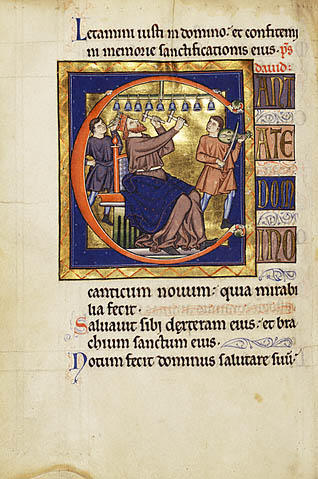 Letamini iusti in domino: et confitemi
ni memorie sanctificationis eius. ps
david:
CANT
ATE
DOM
INO
canticum novum: quia mirabi
lia fecit.
Salvavit sibi dextera eius: et bra
chium sanctum eius.
Notum fecit dominus salutare suum: